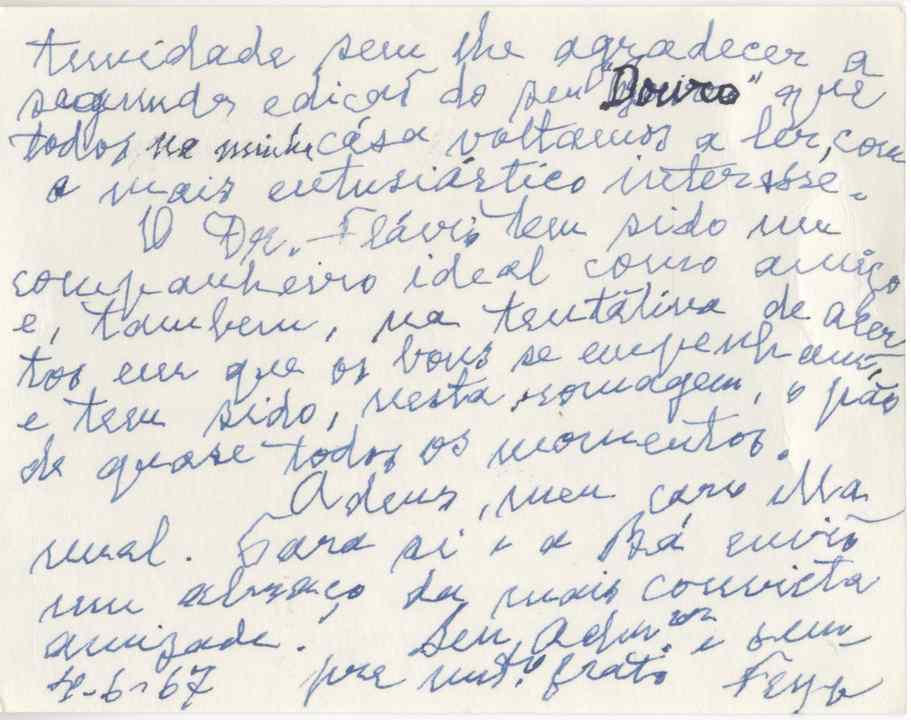 tunidade sem lhe agradecer a
segunda edição do seu "Douro" que
todos na minha casa voltamos a ler, com
o mais entusiástico interesse.
O Dr. Flávio tem sido um
companheiro ideal como amigo
e, tambem, na tentativa de acer
tos em que os bons se empenham,
e tem sido, nesta romagem, o pão
de quase todos os momentos.
Adeus, meu caro Ma
nual. Para si e a Bá envio
um abraço da mais convicta
amizade. Seu, Adm.or e sem
pre mt.o grato
4-6-67